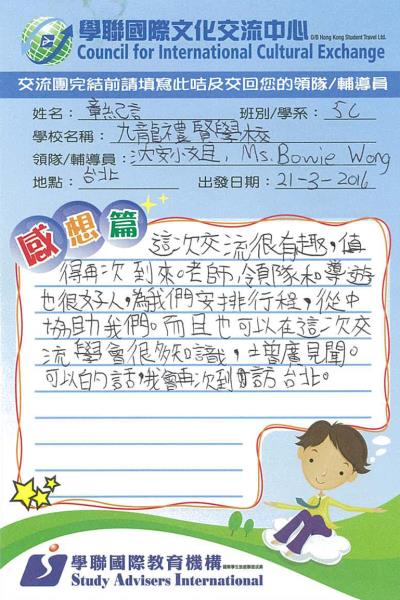 學聯國際文化交流中心 O/B Hong Kong Student Travel Ltd.
Council for International Cultural Exchange
交流團完結前請填寫此咭及交回您的領隊/輔導員
姓名：章紀言 班別/學系：5C
學校名稱：九龍禮賢學校
領隊/輔導員：沈安小姐, Ms. Bowie Wong
地點：台北 出發日期：21-3-2016
感想篇
這次交流很有趣，值
得再次到來。老師，領隊和導遊
也很好人，為我們安排行程，從中
協助我們。而且也可以在這次交
流學會很多知識，增廣見聞。
可以的話，我會再次到訪台北。
學聯國際教育機構
Study Advisers International